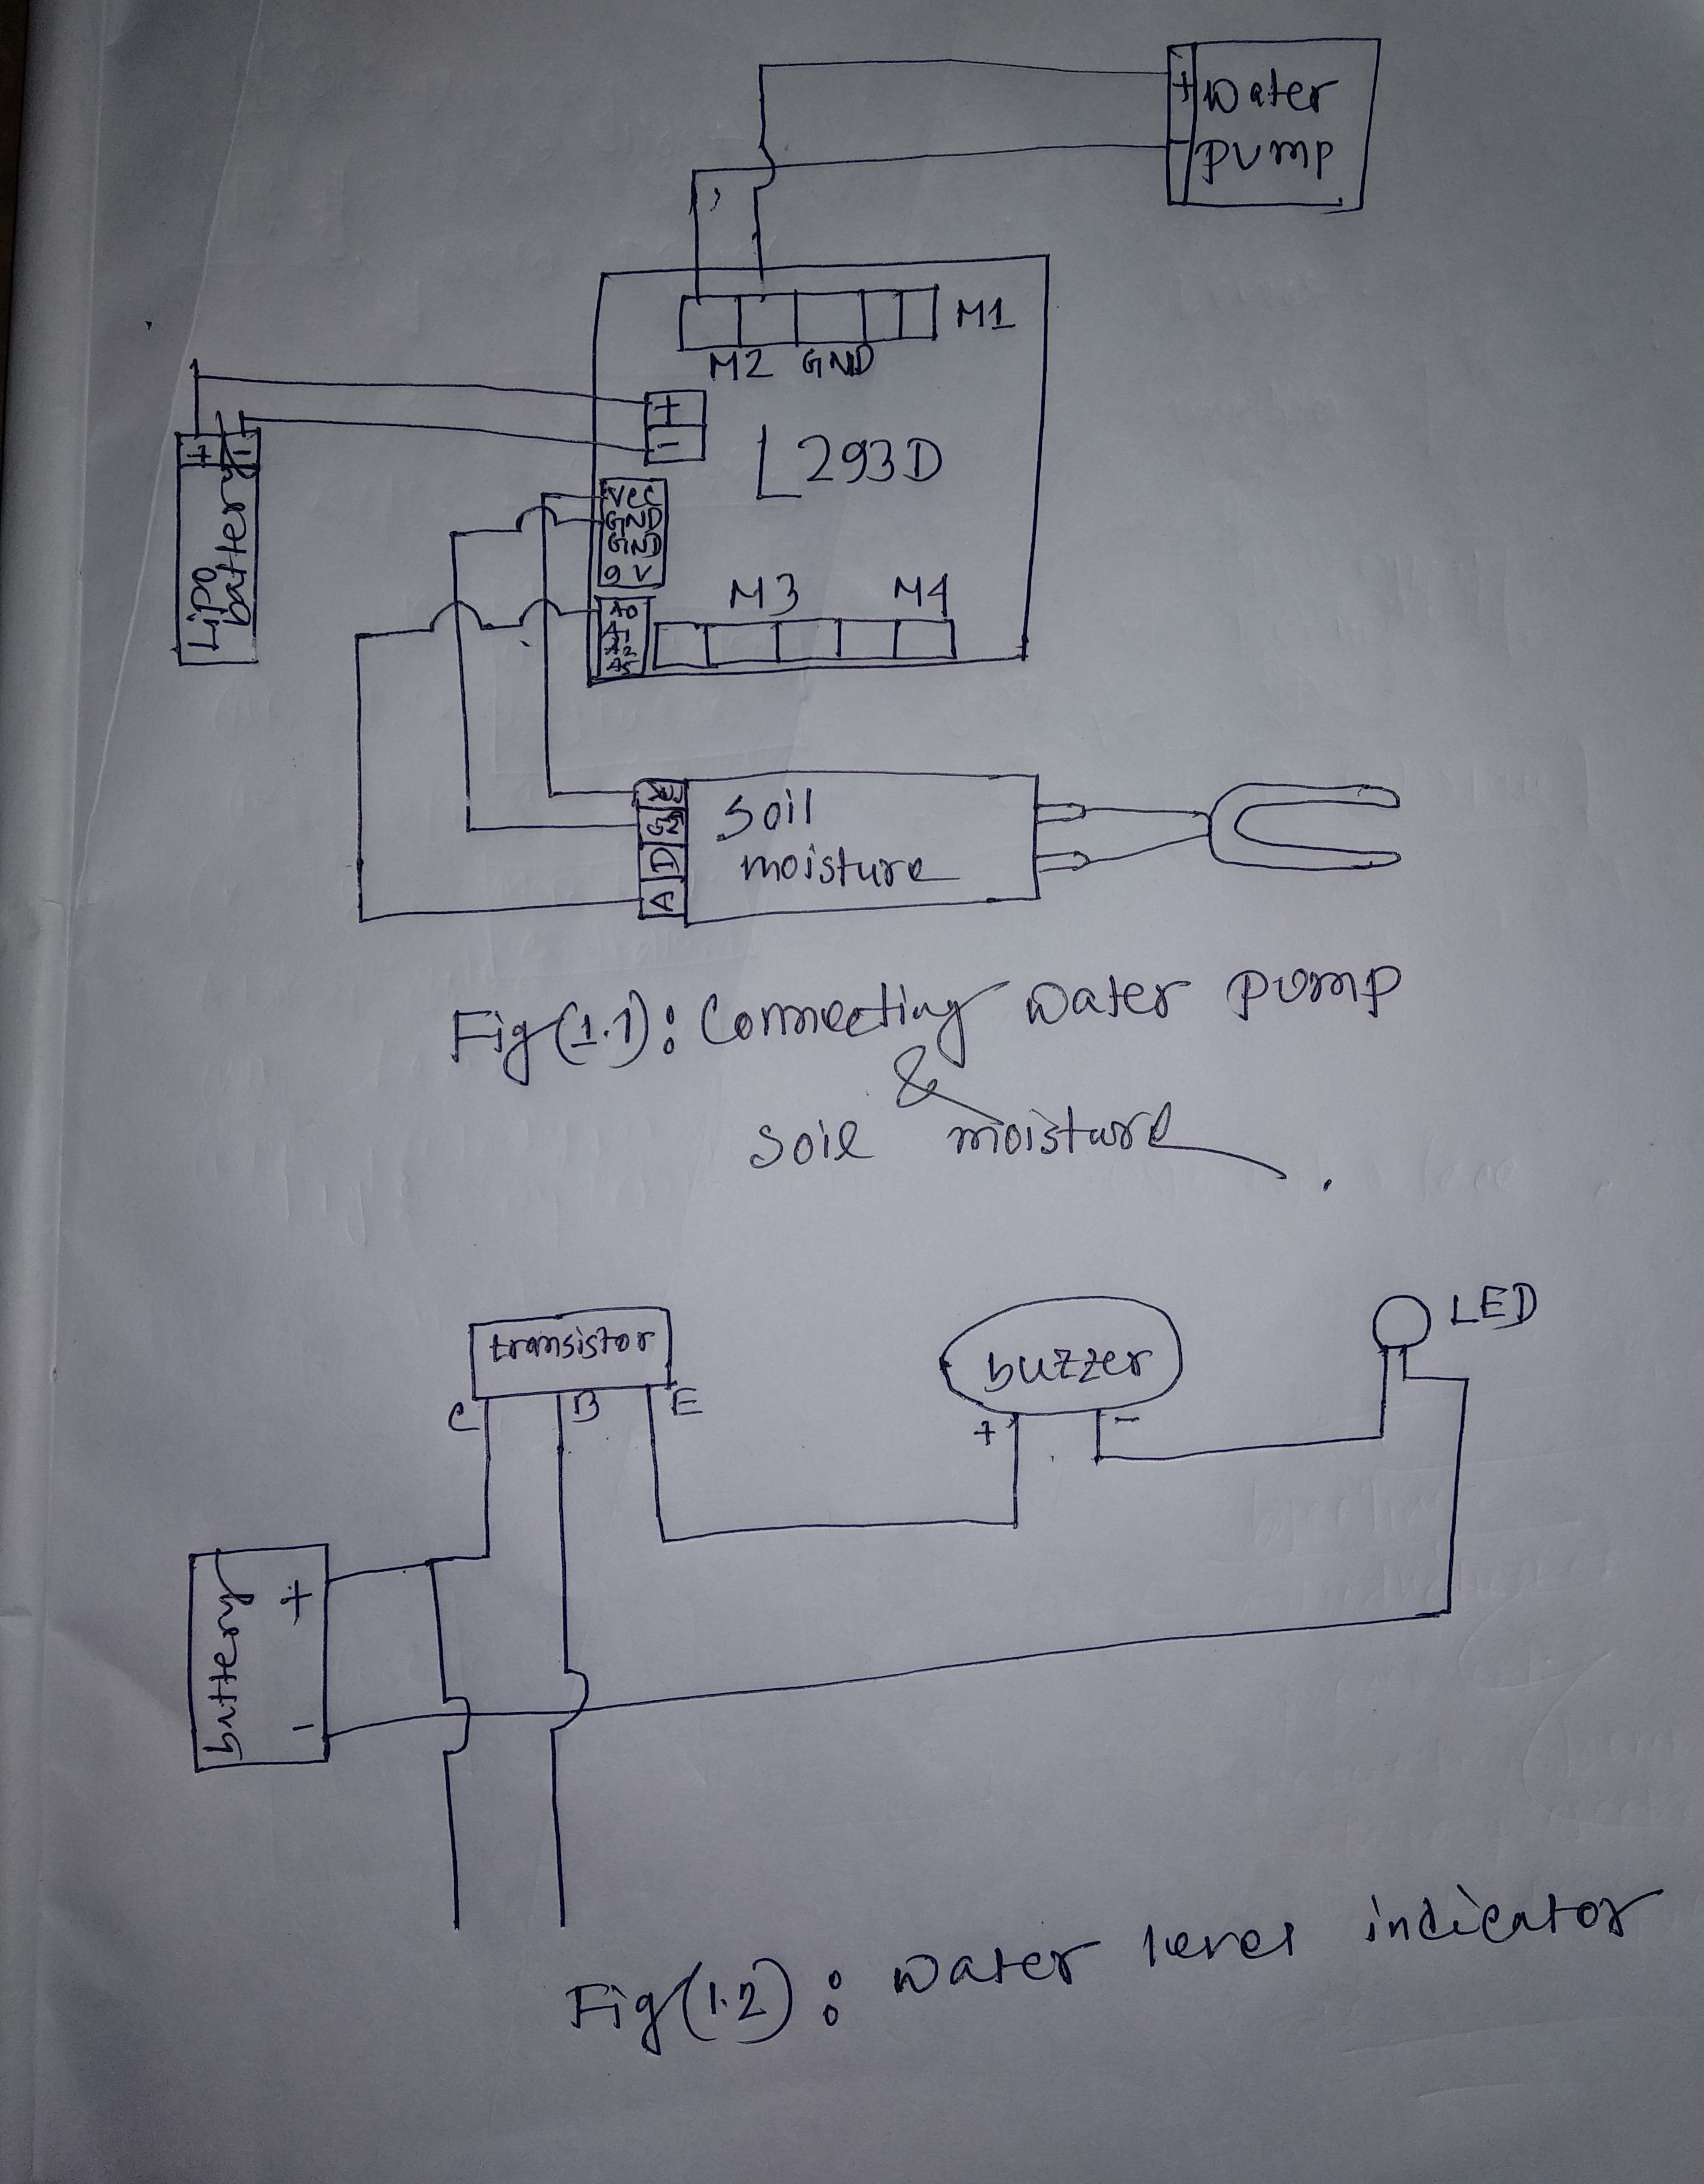 + water
- pump
M1
M2 GND
+
-
L293D
+ -
Lipo
battery
VCC
GND
GND
9V
M3 M4
A0
A1
A2
GND
D
A
soil
moisture
Fig(1.1): Connecting water pump
&
soil moisture.
transistor
C B E
buzzer
+ -
LED
battery
+
-
Fig(1.2): water level indicator